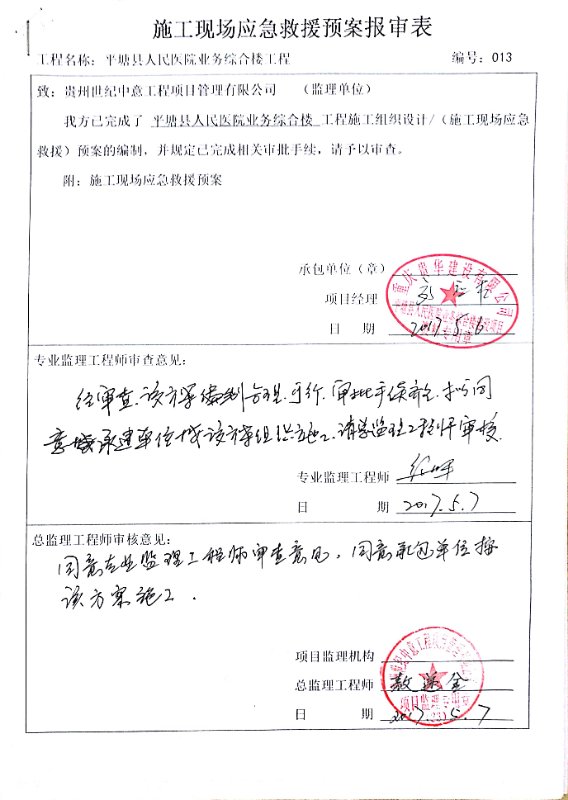 施工现场应急救援预案报审表
工程名称：平塘县人民医院业务综合楼工程 编号：013
致：贵州世纪中意工程项目管理有限公司 （监理单位）
我方已完成了 平塘县人民医院业务综合楼 工程施工组织设计/（施工现场应急
救援）预案的编制，并规定已完成相关审批手续，请予以审查。
附：施工现场应急救援预案
承包单位（章）
重庆贵华建设有限公司
项目经理
日 期 2017.5.6
专业监理工程师审查意见：
经审查，该方案编制合理、可行，审批手续齐全，拟同
意承建单位按该方案组织施工，请总监理工程师审核。
专业监理工程师
日 期 2017.5.7
总监理工程师审核意见：
同意专业监理工程师审查意见，同意承包单位按
该方案施工．
项目监理机构
总监理工程师
日 期 2017.5.7